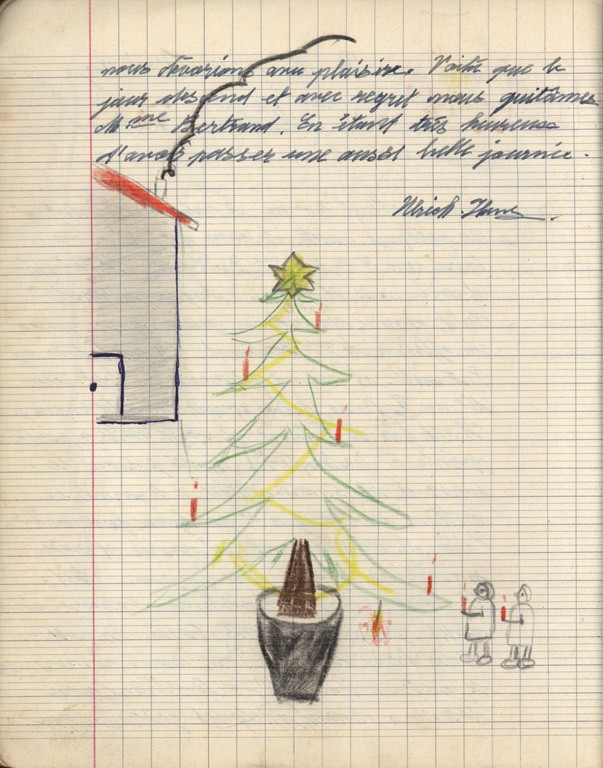 nous dévorions avec plaisir. Voilà que le
jour descend et avec regret nous quitâmes
Mme Bertrand. En étant très heureuse
d'avoir passer une aussi belle journée.
Ulrich